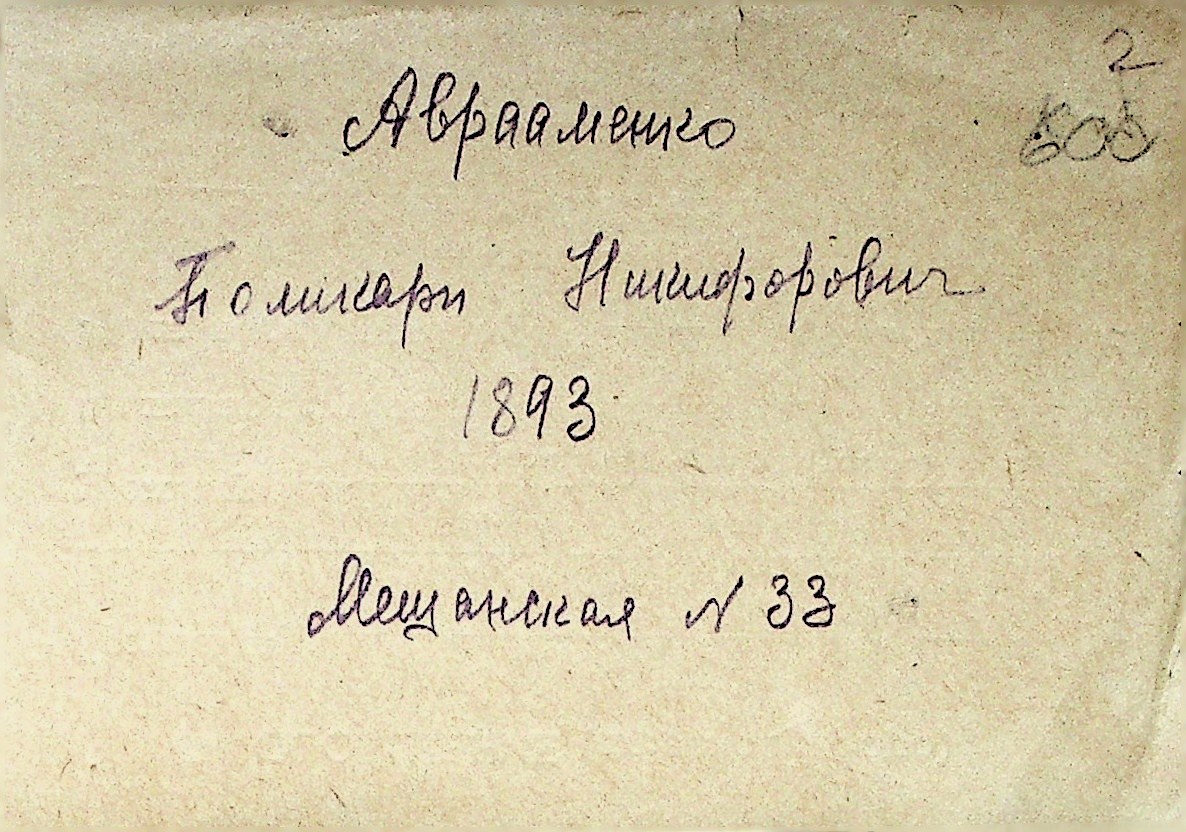 2
Аврааменко
Поликарп Никифорович
1893
Мещанская N 33